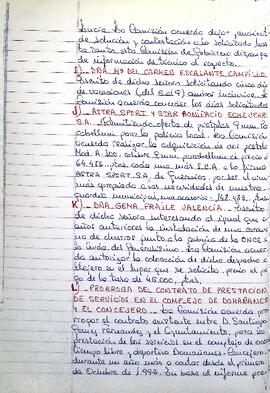 tancia. La Comisión acuerda dejar pendiente
de solución y contestación a lo solicitado hasta
la tanto esta Comisión de Gobierno disponga
de información técnica al respecto.
I) - DÑA. Mª DEL CARMEN ESCALANTE CAMPILLO.
Escrito de dicha señora solicitando cinco días
de vacaciones (del 5 al 9) ambos inclusive. La
Comisión acuerda conceder los días solicitados
J) - ASTRA SPORT Y STAR BONIFACIO ECHEVERRI
S.A. - Remitiendo oferta de pistolas 9 mm.
parabellum para la policía local. La Comisión
acuerda realizar la adquisición de dos pistolas
Mod. A-100, calibre 9 mm. parabellum al precio de
64.486.- ptas. cada una más I.V.A. a la firma
ASTRA SPORT S.A. de Guernica, por ser el arma
más apropiada a las necesidades de nuestra
guardia municipal,
K) - DÑA. GENA FRAILE VALENCIA. - Escrito
de dicha señora interesando al igual que en
años anteriores la instalación de una caseta
de churros junto a la parada de la ONCE en
la Avda. del Generalísimo. La Comisión acuerda
autorizar la colocación de dicho despacho
en el lugar que se solicita, previo el pago
de la tasa de 45.000,- ptas.
L) - PRÓRROGA DEL CONTRATO DE PRESTACIÓN
DE SERVICIOS EN EL COMPLEJO DE DOMAÑANCE
Y EL CONCEJERO. - La Comisión acuerda
prorrogar el contrato existente entre D. Santiago
Gómez Fernández y el Ayuntamiento, para la
prestación de los servicios en el complejo de
tiempo libre y deportivo Domañances-Concejero,
durante un año más a contar desde el primero
de Octubre de 1.994. En base al informe